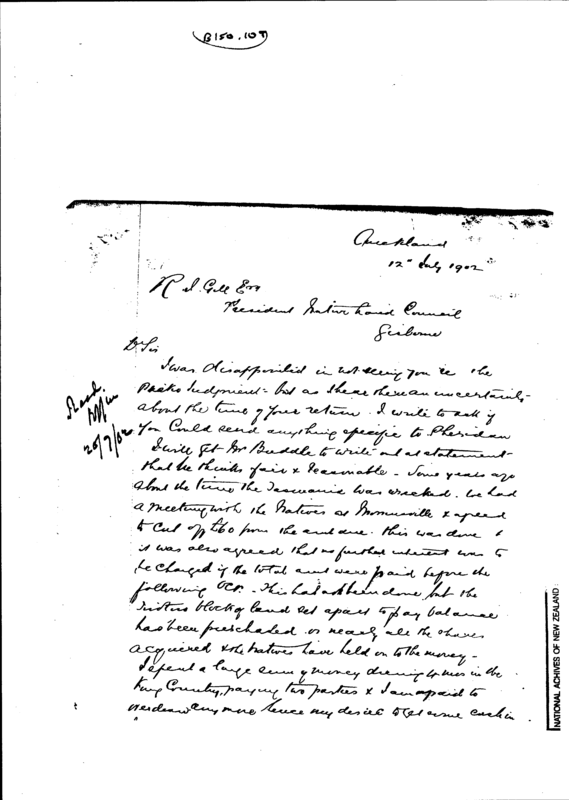 B150.109
Auckland
12" July 1902
R. J. Gill Esq
President Native Land Council
Gisborne
Dr Sir
I was disappointed in not seeing you re the
judgment - but as I hear there an uncertainty
about the time of your return. I write to ask if
you could send anything specific to Sheridan
I will get Mr Buddle to write out a statement
that he thinks fair & reasonable - Some years ago
about the time the Tasmania was wrecked. we had
a meeting with the Natives at & agreed
to cut off £60 from the amt due. this was done &
it was also agreed that no further interest was to
be charged if the total amt were paid before the
following Octr. This has not been done but the
block of land set apart to pay balance
has been purchased or nearly all the shares
acquired & the Natives have held on to the money -
I spend a large sum of money in the
King Country, paying two parties & I am afraid to
overdraw any more hence my desire to get some cash in
Read.
20/7/02
NATIONAL ACHIVES OF NEW ZEALAND